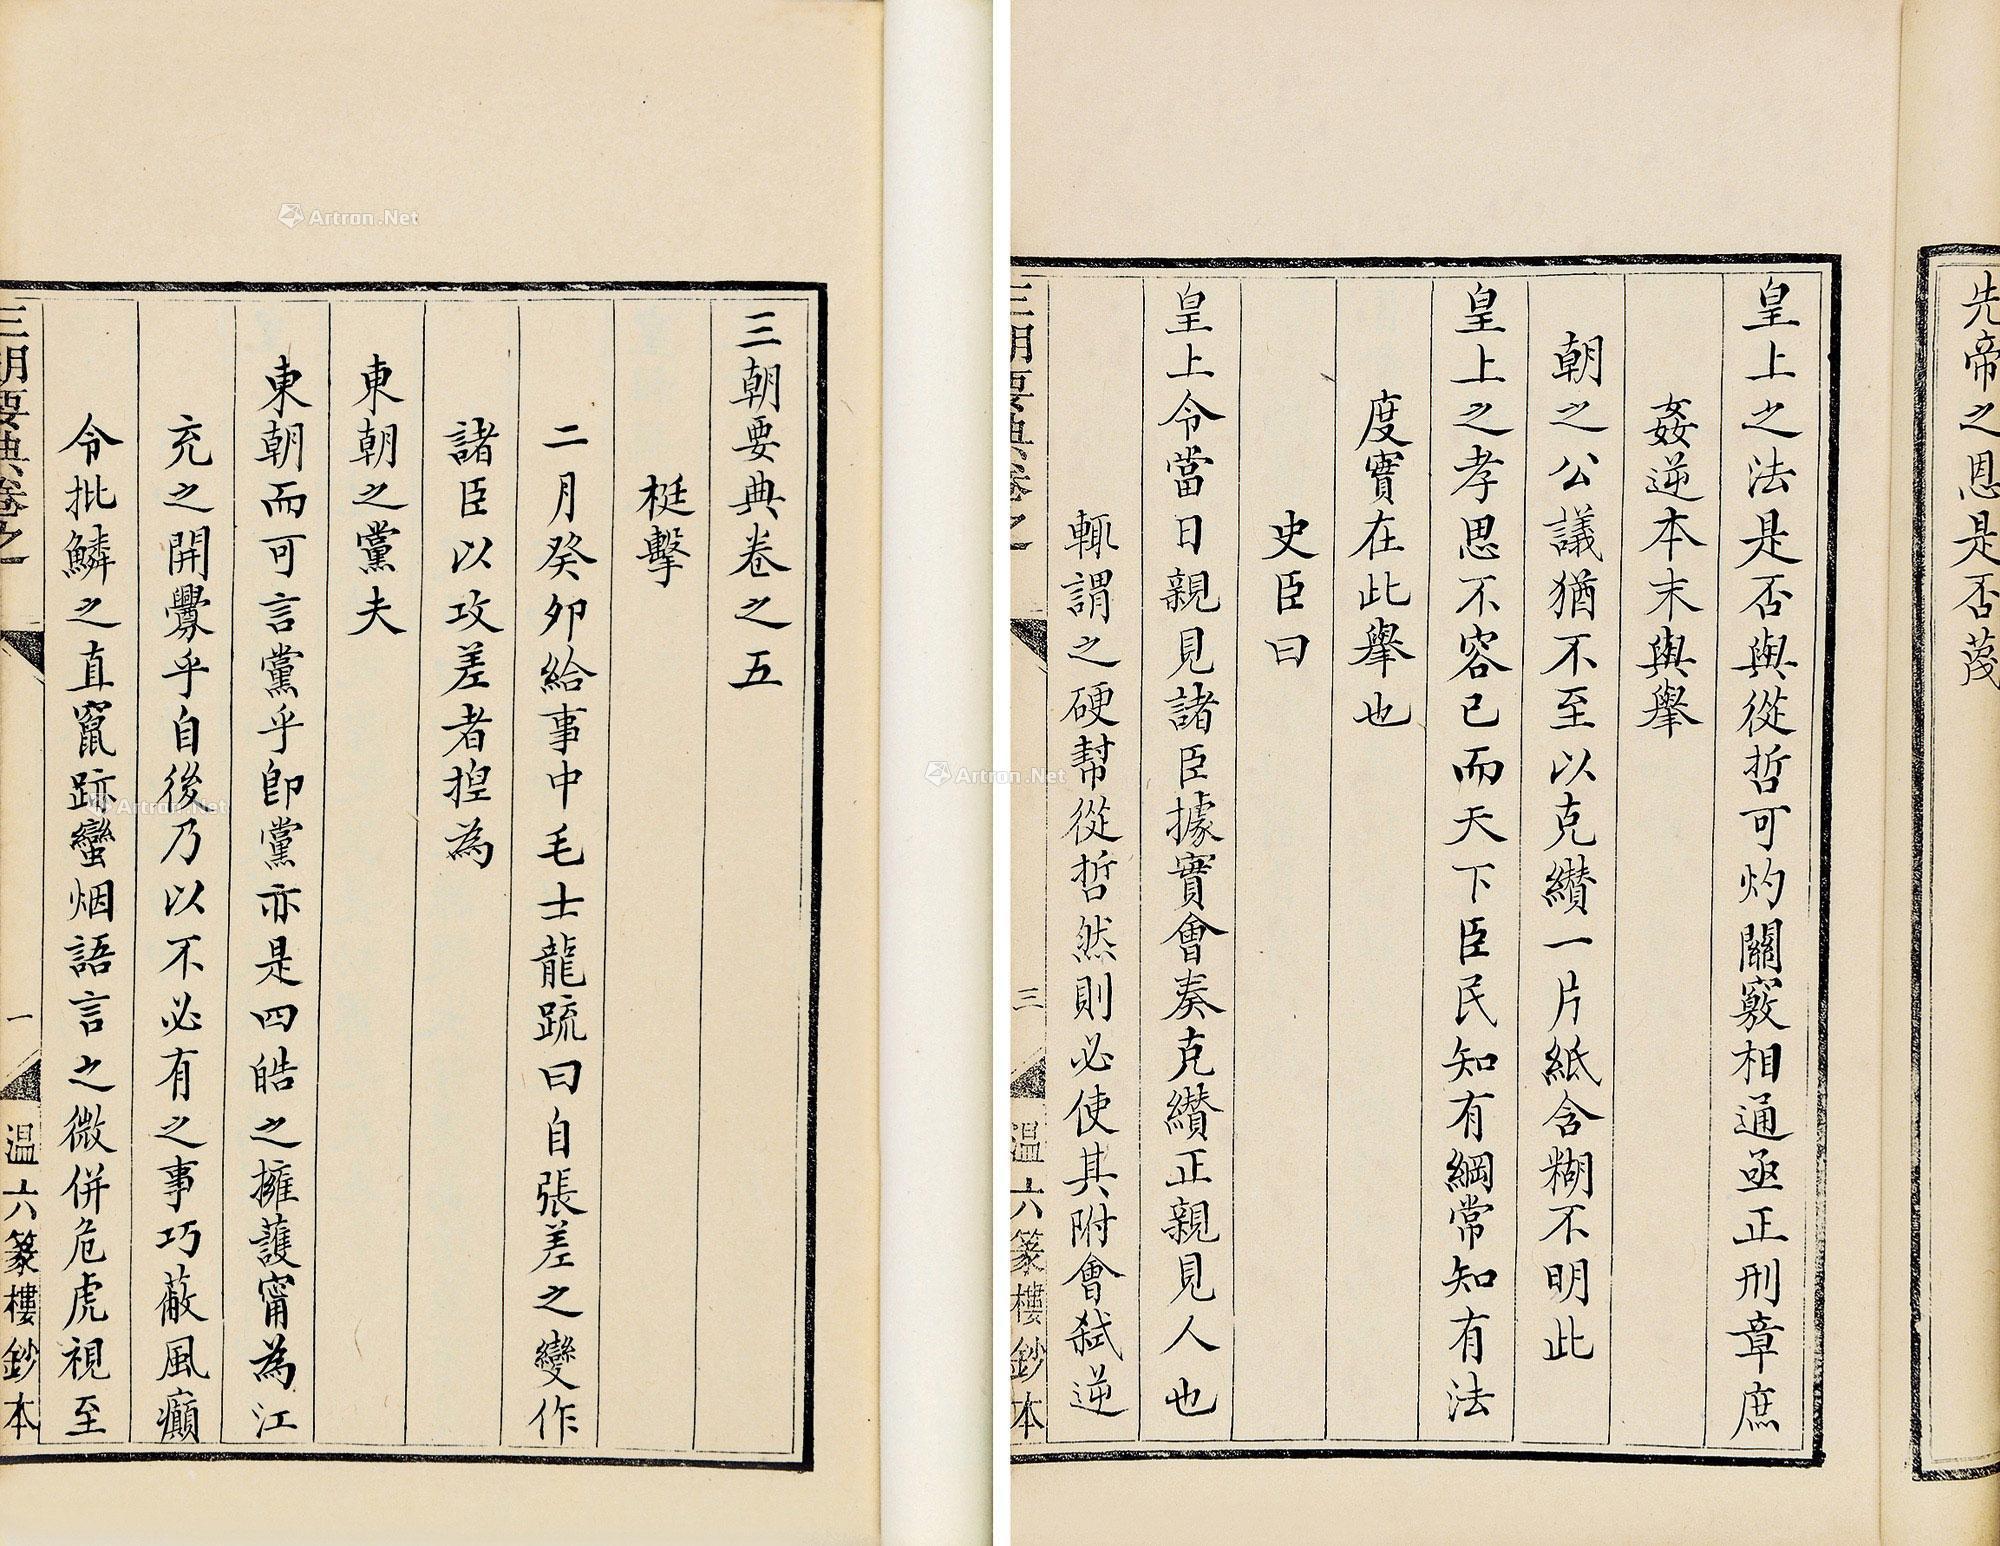 先帝之恩是否蔑
皇上之法是否與從哲可灼關竅相通亟正刑章庶
姦逆本末與舉
朝之公議猶不至以克纘一片紙含糊不明此
皇上之孝思不容已而天下臣民知有綱常知有法
度實在此舉也
史臣曰
皇上令當日親見諸臣據實會奏克纘正親見人也
輒謂之硬幫從哲然則必使其附會弒逆
三朝要典卷之
三
温六篆樓鈔本
三朝要典卷之五
梃擊
二月癸卯給事中毛士龍疏曰自張差之變作
諸臣以攻差者揑為
東朝之黨夫
東朝而可言黨乎卽黨亦是四皓之擁護甯為江
充之開釁乎自後乃以不必有之事巧蔽風癲
令批鱗之直竄跡蠻烟語言之微併危虎視至
三朝要典卷之
一
温六篆樓鈔本
Artron.Net
Artron.Net
Artron.Net